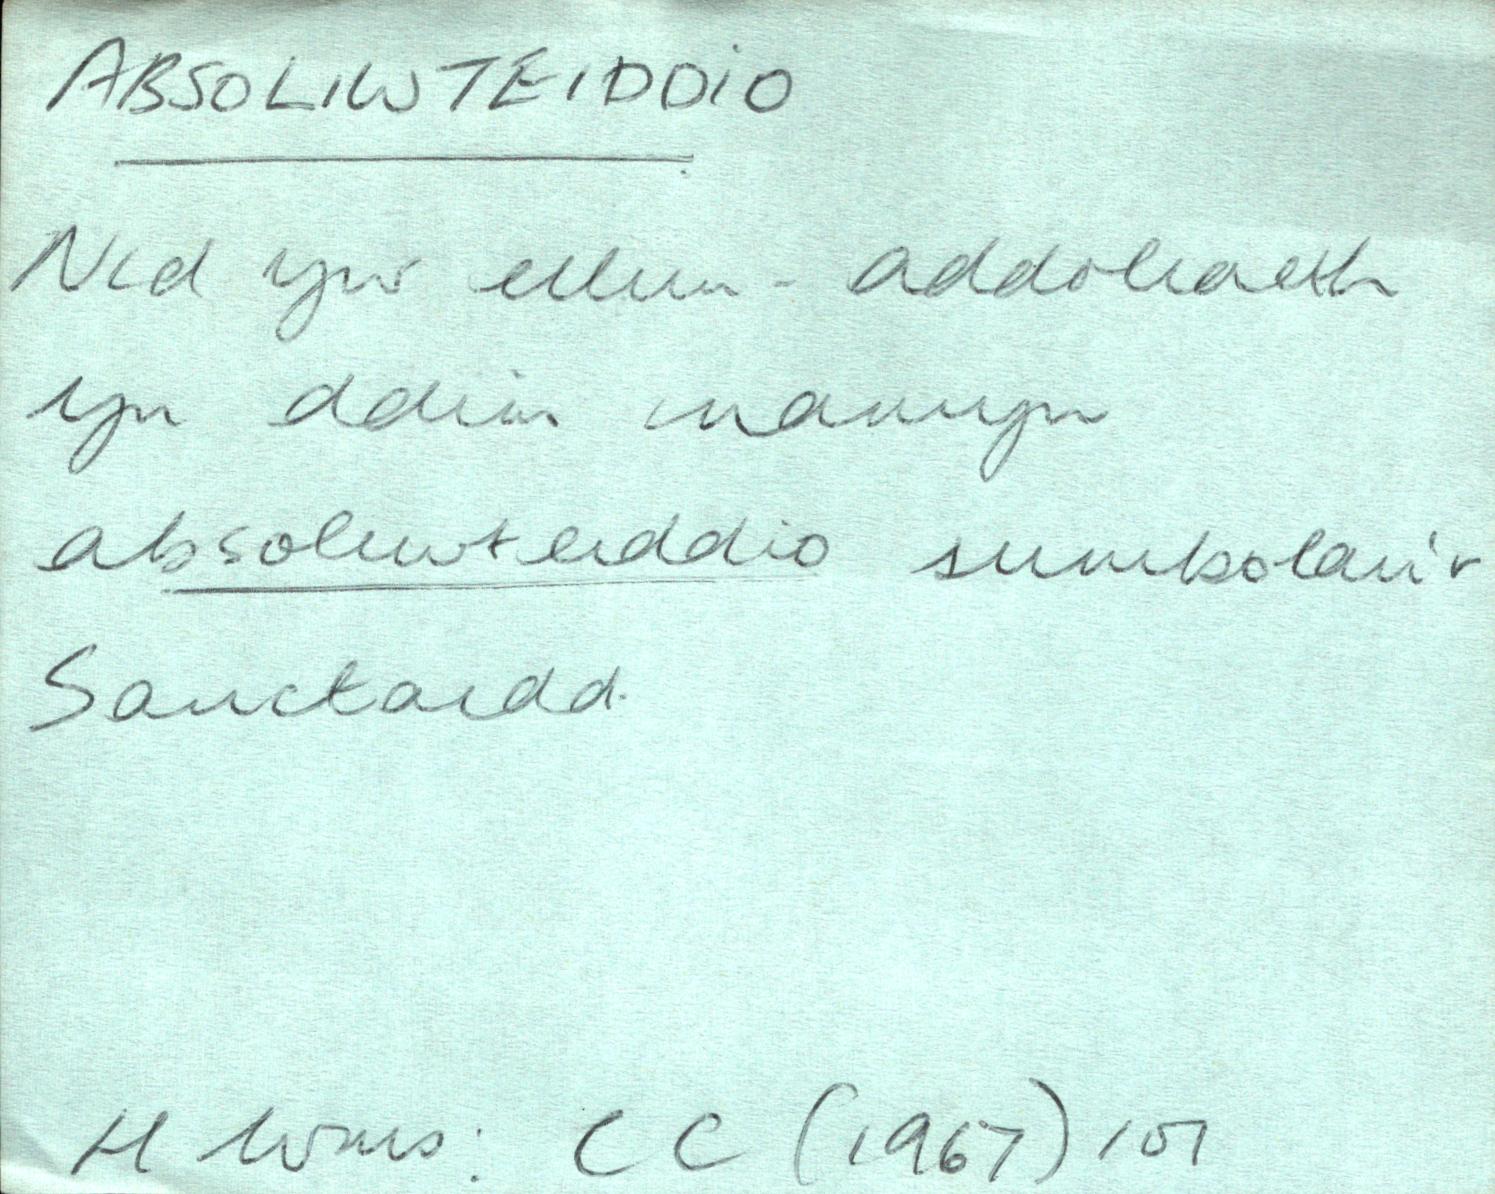 ABSOLIWTEIDDIO
Nid yw eilun-addoliaeth
yn ddim namyn
absoliwteiddio sumbolau'r
Sanctaidd.
H Wms: CC (1967) 101